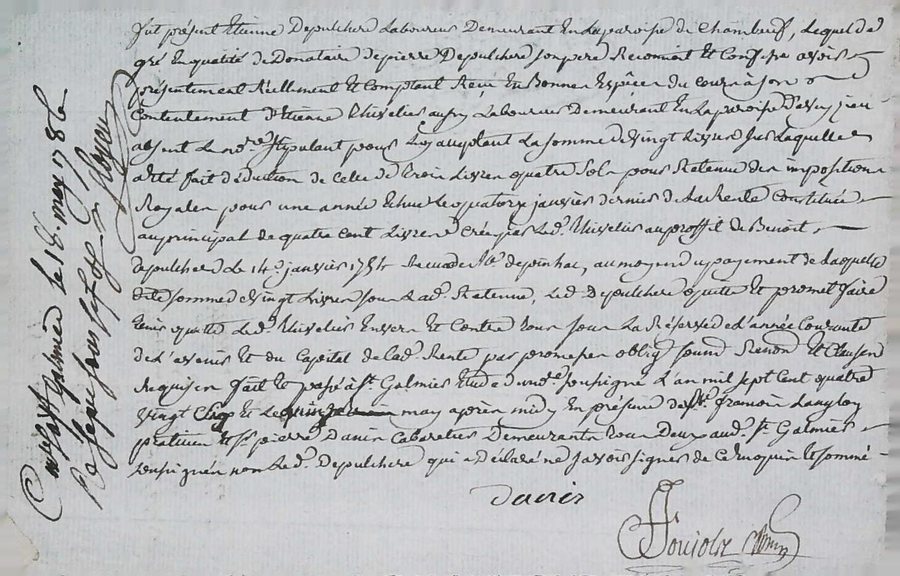 fut présent Etienne Depulchere Laboureur Demeurant En La paroisse de Chambeuf, Lequel de
gré En qualité de Donataire de pierre Depulchere son pere Reconnoit Et Confesse avoir
présentement Réellement Et Comptant Receu En Bonnes Espèces du cours à son
Contentement d'Etienne Thivelier aussy Laboureur Demeurant En La paroisse
absent Le no.re Stipulant pour Luy acceptant La somme de Vingt Livres sur Laquelle
a Eté fait déduction de Celle de trois Livres quatre Sols pour Retenue des impositions
Royales pour une année Echue Le quatorze janvier dernier de La Rente Constituée
au principal de quatre Cent Livres Créé par Led. Thivelier au proffit de Benoit
Depulchere Le 14.e janvier 1754 Recu de , au moyen du payement de Laquelle
dite somme de Vingt Livres sous Lad. Retenue, Led. Depulchere quite Et promet faire
tenir quitte Led. Thivelier Envers Et Contre tous sous La Réserve de L'année Courante
de L'avenir Et du Capital de Lad. Rente par promesses oblig. soum. Renon. Et Clauses
Requises fait Et passé à St. Galmier Etude du no.re soussigné L'an mil sept Cent quatre
Vingt Et Le may après midy En présence de Sr. francois Langlois
praticien Et Sr. pierre Davin Cabaretier Demeurants tous Deux aud. St. Galmier
soussignés non Led. Depulchere qui a Déclaré ne Savoir signer de Ce Enquis Et sommé
Ponjolz
a St Galmier le 18. may 1786